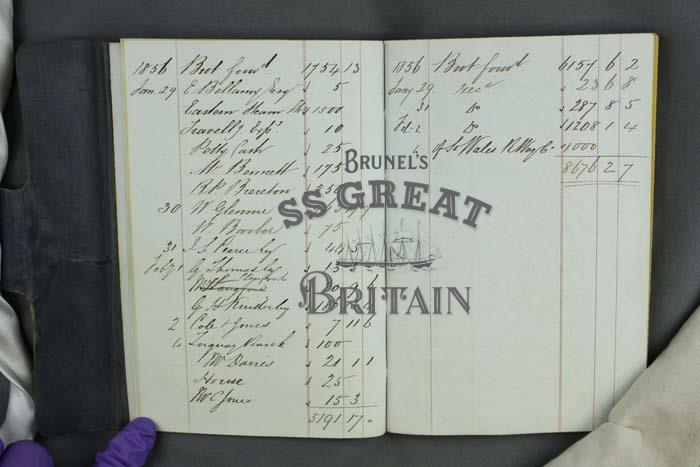 1856 Brot forwd 1754 13
Jan. 29 E Bellamy Esq 5
Eastern Steam 1500
Travellg 10
Petty Cash 25
Mr Bennett 175
R.P. Brereton 250
30 W Glennie
W. Barber 75
31
Feby 1 G Thomas
G H Kinderley
2 Cole & Jones 7 11 6
6 Torquay Bank 100
Mr Davies 21 1 1
House 25
Mr C Jones 15 3
5191 17
1856 Brot forwd 6154 6 2
Jany 29 recd 236 8
31 Do 287 8 5
Feb. 2 Do 1208 1 4
6 of So Wales R Way Co 1000
8676 2 7
BRUNEL'S
SS GREAT
BRITAIN